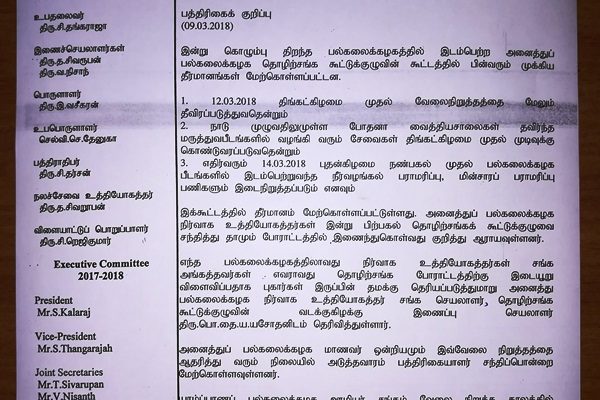 உபதலைவர்
திரு.சி.தங்கராஜா
இணைச்செயலாளர்கள்
திரு.த.சிவரூபன்
திரு.வ.நிசாந்
பொருளாளர்
திரு.இ.வசீகரன்
உபபொருளாளர்
செல்வி.செ.தேனுகா
பத்திராதிபர்
திரு.சி.தர்சன்
நலச்சேவை உத்தியோகத்தர்
திரு.த.சிவறூபன்
விளையாட்டுப் பொறுப்பாளர்
திரு.சி.றெஜிகுமார்
Executive Committee
2017-2018
President
Mr.S.Kalaraj
Vice-President
Mr.S.Thangarajah
Joint Secretaries
Mr.T.Sivarupan
Mr.V.Nisanth
பத்திரிகைக் குறிப்பு
(09.03.2018)
இன்று கொழும்பு திறந்த பல்கலைக்கழகத்தில் இடம்பெற்ற அனைத்துப்
பல்கலைக்கழக தொழிற்சங்க கூட்டுக்குழுவின் கூட்டத்தில் பின்வரும் முக்கிய
தீர்மானங்கள் மேற்கொள்ளப்பட்டன.
1. 12.03.2018 திங்கட்கிழமை முதல் வேலைநிறுத்தத்தை மேலும்
தீவிரப்படுத்துவதென்றும்
2. நாடு முழுவதிலுமுள்ள போதனா வைத்தியசாலைகள் தவிர்ந்த
மருத்துவபீடங்களில் வழங்கி வரும் சேவைகள் திங்கட்கிழமை முதல் முடிவுக்கு
கொண்டுவரப்படுவதென்றும்
3. எதிர்வரும் 14.03.2018 புதன்கிழமை நண்பகல் முதல் பல்கலைக்கழக
பீடங்களில் இடம்பெற்றுவந்த நீர்வழங்கல் பராமரிப்பு, மின்சாரப் பராமரிப்பு
பணிகளும் இடைநிறுத்தப்படும் எனவும்
இக்கூட்டத்தில் தீர்மானம் மேற்கொள்ளப்பட்டுள்ளது. அனைத்துப் பல்கலைக்கழக
நிர்வாக உத்தியோகத்தர்கள் இன்று பிற்பகல் தொழிற்சங்கக் கூட்டுக்குழுவை
சந்தித்து தாமும் போராட்டத்தில் இணைந்துகொள்வது குறித்து ஆராயவுள்ளனர்.
எந்த பல்கலைக்கழகத்திலாவது நிர்வாக உத்தியோகத்தர்கள் சங்க
அங்கத்தவர்கள் எவராவது தொழிற்சங்க போராட்டத்திற்கு இடையூறு
விளைவிப்பதாக புகார்கள் இருப்பின் தமக்கு தெரியப்படுத்துமாறு அனைத்து
பல்கலைக்கழக நிர்வாக உத்தியோகத்தர் சங்க செயலாளர், தொழிற்சங்க
கூட்டுக்குழுவின் வடக்குகிழக்கு இணைப்பு செயலாளர்
திரு.பொ.தை.ய.யசோதனிடம் தெரிவித்துள்ளார்.
அனைத்துப் பல்கலைக்கழக மாணவர் ஒன்றியமும் இவ்வேலை நிறுத்தத்தை
ஆதரித்து வரும் நிலையில் அடுத்தவாரம் பத்திரிகையாளர் சந்திப்பொன்றை
மேற்கொள்ளவுள்ளனர்.
யாழ்ப்பாணப் பல்கலைக்கழக ஊழியர் சங்கம் வேலை நிறுத்த காலத்தில்